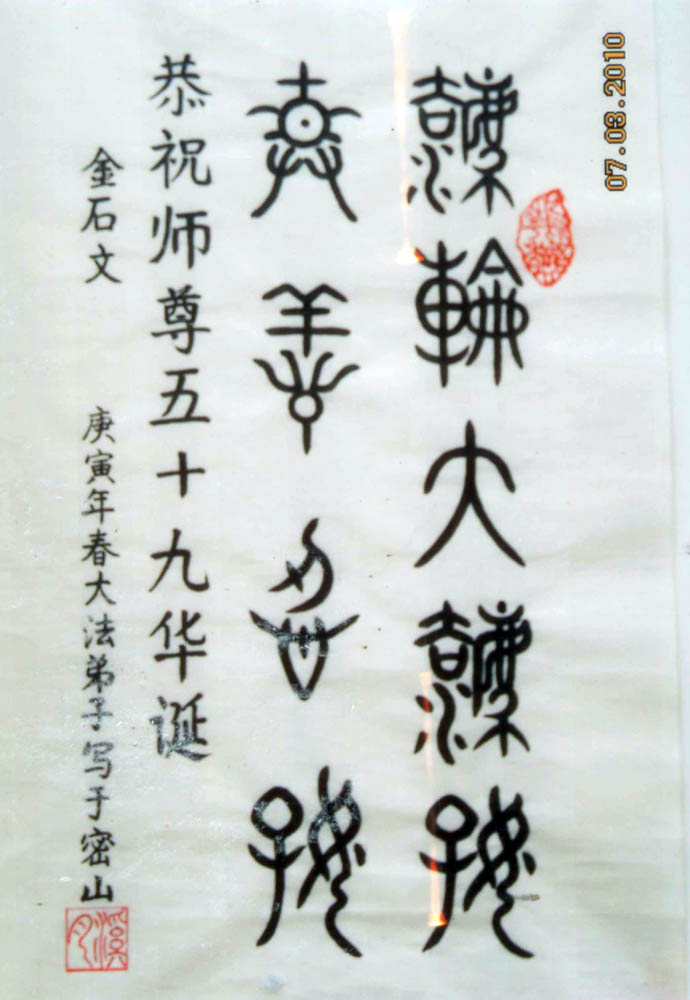 灋輪大灋好
真善忍好
恭祝师尊五十九华诞
金石文
庚寅年春大法弟子写于密山
07.03.2010